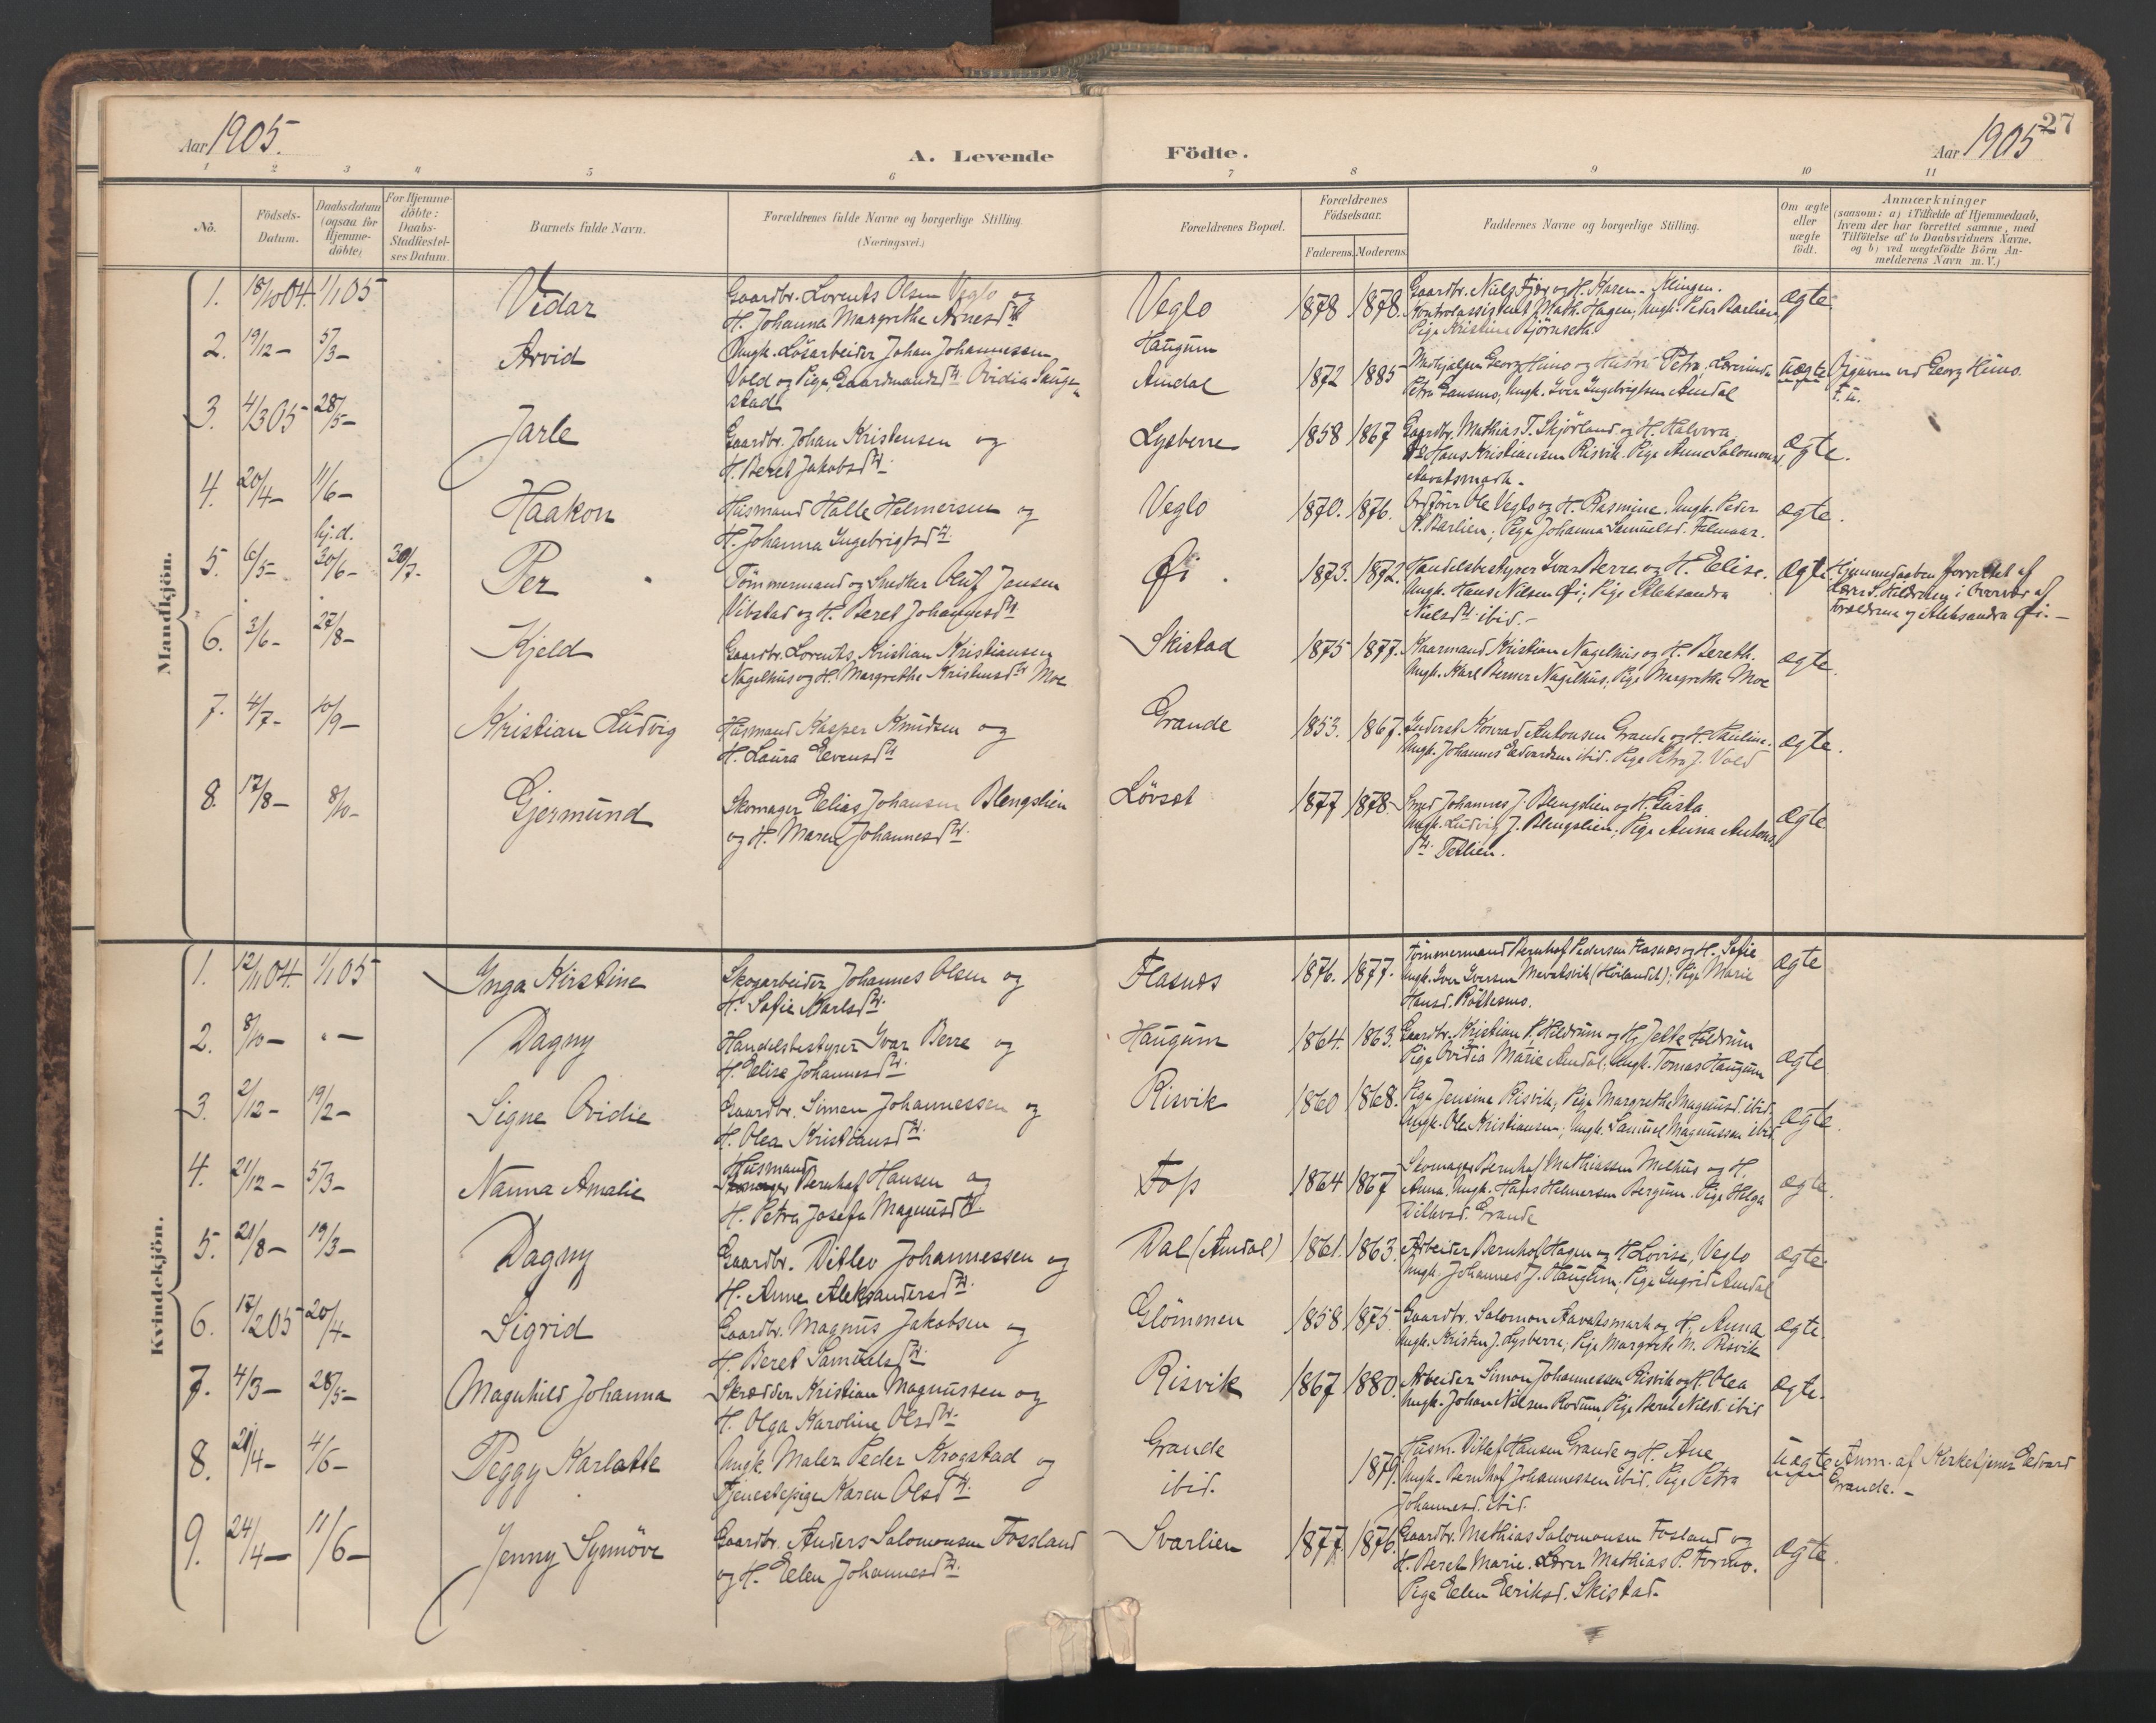 Aar 1905.
A. Levende Födte.
Aar 1905
27
1 2 3 4 5 6 7 8 9 10 11
No.
Födsels-Datum.
Daabsdatum (ogsaa for Hjemme-döbte)
For Hjemme-döbte: Daabs-Stadfæstel-ses Datum.
Barnets fulde Navn.
Forældrenes fulde Navne og borgerlige Stilling. (Næringsvei.)
Forældrenes Bopæl.
Forældrenes Födselsaar.
Faderens. Moderens.
Faddernes Navne og borgerlige Stilling.
Om ægte eller uægte födt.
Anmærkninger
(saasom: a) i Tilfælde af Hjemmedaab,
hvem der har forrettet samme, med
Tilföielse af to Daabsvidners Navne.
og b) ved uægtefödte Börn An-
melderens Navn m. V.)
Mandkjön.
1. 18/10 04 1/1 05 Vidar
Gaardbr. Lorents Olsen Veglo og
H. Johanna Margrethe Arnesdtr.
Veglo 1878 1878.
Gaardbr. Niels Fjær og H. Karen Klingen.
Kontrolassistent Math. Hagen; Ungk. Peter Barlien,
Pige Kristine Bjørnseth
ægte.
2. 19/12 – 5/3 – Arvid
Ungk. Løsarbeider Johan Johannessen
Vold og Pige, Gaardmandsdtr. Ovidia Haugen
stad
Haugum
Amdal 1872 1885
Georg Himo og Hustru Petra,
Petra Gansmo, Ungk. Iver Ingebrigtsen Amdal
uægte
Opgaven ved Georg Himo.
3. 4/3 05 28/5 – Jarle
Gaardbr. Johan Kristensen og
H. Beret Jakobsdtr.
Lysberre 1858 1867
Gaardbr. Mathias T. Skjörland og H. Halvora
Hans Kristiansen Risvik. Pige Anne Salomonsd.
Aavatsmark.
ægte.
4. 20/4 – 11/6 – Haakon
Husmand Halle Helmersen og
H. Johanna Ingebrigtsdtr.
Veglo 1870. 1876.
Ordfører Ole Veglo og H. Rasmine. Ungk. Peter
A. Barlien; Pige Johanna Samuelsd.
ægte.
5. 6/5 – hj.d. 30/6 – 30/7 – Per
Tömmermand og Snedker Oluf Jensen
Vibstad og H. Beret Johannesdtr
Öi. 1873. 1872.
Handelsbestyrer Ivar Berre og H. Elise.
Ungk. Hans Nilsen Öi; Pige Aleksandra
Nielsdtr. ibid. –
ægte.
Hjemmedaaben forrettet af
Lærer S. Hildrum i Overvær af
Forældrene og Aleksandra Öi. –
6. 3/6 – 27/8 – Kjeld
Gaardbr. Lorents Kristian Kristiansen
Nagelhus og H. Margrethe Kristensdtr Moe
Skistad 1875 1877.
Kaarmand Kristian Nagelhus og H. Bereth.
Ungk. Karl Berner Nagelhus; Pige Margrethe Moe
ægte.
7. 4/7 – 10/9 – Kristian Ludvig
Husmand Kasper Knudsen og
H. Laura Evensdtr
Grande 1853. 1867.
Inderst Konrad Antonsen Grande og H. Pauline.
Ungk. Johannes Edvardsen ibid. Pige Petra J. Vold
ægte.
8. 17/8 – 8/10 – Gjermund
Skomager Elias Johansen Blengslien
og H. Maren Johannesdtr.
Lövset 1877 1878.
Smed Johannes J. Blengslien og H. Gusta
Ungk. Ludvig J. Blengslien; Pige Anna Antons
dtr. Tetlien.
ægte
Kvindekjön.
1. 12/11 04. 1/1 05 Inga Kirstine
Skogarbeider Johannes Olsen og
H. Sofie Karlsdtr.
Flasnes 1876. 1877.
Tømmermand Bernhof Pedersen Flasnes og H. Sofie
Ungk. Iver Iversen Mevatsvik (Höilandet); Pige Marie
Hansd. Röthesmo.
ægte
2. 8/10 – " – Dagny
Handelsbestyrer Ivar Berre og
H. Elise Johannesdtr.
Haugum 1864. 1863.
Gaardbr. Kristian P. Hildrum og H. Jette Hildrum
Pige Ovidia Marie Amdal; Ungk. Tomas Haugum
ægte
3. 2/12 – 19/2 – Signe Ovidie
Gaardbr. Simen Johannessen og
H. Olea Kristiansdtr.
Risvik 1860 1868.
Pige Jensine Risvik; Pige Margrethe Magnusd. ibid.
Ungk. Ole Kristiansen; Ungk. Samuel Magnussen ibid.
ægte.
4. 21/12 – 5/3 – Nanna Amalie
Husmand
Bernhof Hansen og
H. Petra Josefa Magnusdtr.
Fos 1864 1867
Skomager Bernhof Mathiassen Melhus og H.
Anna. Ungk. Hans Helmersen Bergum. Pige Helga
Ditlevsd. Grande
ægte.
5. 21/8 – 19/3 – Dagny
Gaardbr. Ditlev Johannessen og
H. Anne Aleksandersdtr.
Dal (Amdal) 1861. 1863.
Arbeider Bernhof Hagen og H. Lovise, Veglo
Ungk. Johannes J. Haugum; Pige Ingrid Amdal
ægte.
6. 17/2 05 20/4 – Sigrid
Gaardbr. Magnus Jakobsen og
H. Beret Samuelsdtr.
Glömmen 1858 1875
Gaardbr. Salomon Aavatsmark og H. Anna
Ungk. Kristen J. Lysberre; Pige Margrete M. Risvik
ægte.
7. 4/3 – 28/5 – Magnhild Johanna
Skrædder Kristian Magnussen og
H. Olga Karoline Olsdtr.
Risvik 1867 1880.
Arbeider Simon Johannessen Risvik og H. Olea
Ungk. Johan Nilsen Rodum, Pige Beret Nilsd. ibid
ægte.
8. 21/4 – 4/6 – Peggy Karlotte
Ungk. Maler Peder Krogstad og
Tjenestepige Karen Olsdtr.
Grande
ibid. 1879.
Husm. Ditlef Hansen Grande og H. Ane
Ungk. Bernhof Johannessen ibid. Pige Petra
Johannesd. ibid.
uægte
Anm. af Kirketjener Edvard
Grande. –
9. 24/4 – 11/6 – Jenny Synnöve
Gaardbr. Anders Salomonsen Fossland
og H. Elen Johannesdtr.
Svarlien 1877. 1876.
Gaardbr. Mathias Salomonsen Fosland og
H. Beret Marie. Lærer Mathias P. Formo.
Pige Elen Eeriksd. Skistad.
ægte.